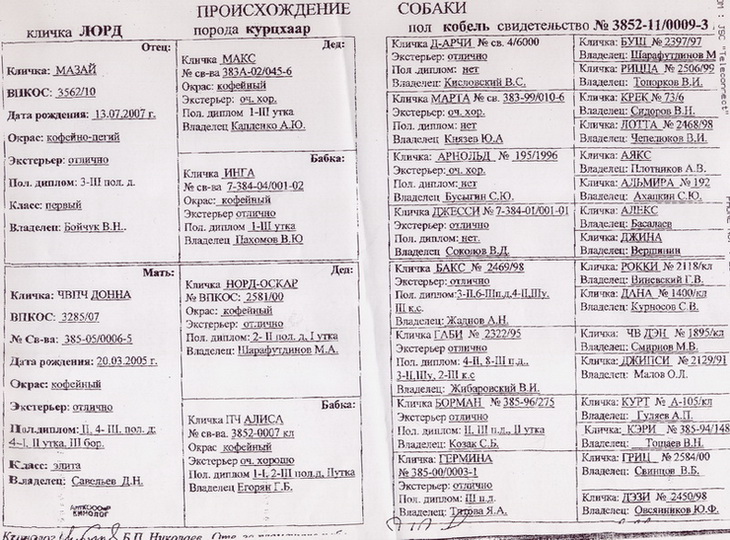 ПРОИСХОЖДЕНИЕ СОБАКИ
кличка ЛОРД порода курцхаар пол кобель свидетельство № 3852-11/0009-3
Отец:
Кличка: МАЗАЙ
ВПКОС: 3562/10
Дата рождения: 13.07.2007 г.
Окрас: кофейно-пегий
Экстерьер: отлично
Пол. диплом: 3-III пол. д.
Класс: первый
Владелец: Бойчук В.Н..
Мать:
Кличка: ЧВПЧ ДОННА
ВПКОС: 3285/07
№ Св-ва: 385-05/0006-5
Дата рождения: 20.03.2005 г.
Окрас: кофейный
Экстерьер: отлично
Пол.диплом: II, 4- III. пол. д;
4-I, II утка, III бор.
Класс: элита
Владелец: Савельев Д.Н.
КИНОЛОГ
Дед:
Кличка МАКС
№ св-ва 383А-02/045-6
Окрас: кофейный
Экстерьер: оч. хор.
Пол. диплом 1-III утка
Владелец Капленко А.Ю.
Бабка:
Кличка ИНГА
№ св-ва 7-384-04/001-02
Окрас: кофейный
Экстерьер отлично
Пол. диплом 1-III утка
Владелец Пахомов В.Ю
Дед:
Кличка НОРД-ОСКАР
№ ВПКОС: 2581/00
Окрас: кофейный
Экстерьер: отлично
Пол. диплом: 2- II пол. д, I утка
Владелец: Шарафутдинов М.А.
Бабка:
Кличка ПЧ АЛИСА
№ св-ва. 3852-0007 кл
Окрас кофейный
Экстерьер оч. хорошо
Пол. диплом 1-I, 2-III пол.д, Iутка
Владелец Егорян Г.Б.
Кличка Д-АРЧИ № св. 4/6000
Экстерьер: отлично
Пол .диплом: нет
Владелец: Кисловский В.С.
Кличка МАРТА № си. 383-99/010-6
Экстерьер: оч. хор.
Пол. диплом: нет
Владелец: Князев Ю.А
Кличка: АРНОЛЬД № 195/1996
Экстерьер: оч. хор.
Пол. диплом: нет
Владелец Бусыгин С.Ю.
Кличка ДЖЕССИ № 7-384-01/001-01
Экстерьер: отлично
Пол. диплом: нет.
Владелец Соколов В.Д.
Кличка БАКС № 2469/98
Экстерьер: отлично
Пол. диплом:3-II,6-IIIп.д,4-II,IIIу.
III к.с.
Владелец: Жаднов А.Н.
Кличка ГАБИ № 2322/95
Экстерьер отлично
Пол. диплом: 4-II, 8-III п.д.,
3-II,IIIу, 2-III к.с
Владелец: Жибаровский В.И.
Кличка БОРМАН № 385-96/275
Экстерьер отлично
Пол. диплом: II, III п.д., II утка
Владелец: Козак С.Б.
Кличка: ГЕРМИНА
№ 385-00/0003-1
Экстерьер: отлично
Пол. диплом: III п.д.
Владелец: Титова Я.А.
Кличка: БУШ № 2397/97
Владелец: Шарафутдинов М
Кличка: РИЦЦА № 2506/99
Владелец: Топорков В.И.
Кличка: КРЕК № 73/6
Владелец: Сидоров В.Н.
Кличка: ЛОТТА № 2468/98
Владелец: Чепелюков В.И.
Кличка: АЯКС
Владелец: Плотников А.В.
Кличка: АЛЬМИРА № 192
Владелец: Ахапкин С.Ю.
Кличка: АЛЕКС
Владелец: Басалаев
Кличка: ДЖИНА
Владелец: Вершинин
Кличка: РОККИ № 2118/кл
Владелец: Виневский Г.В.
Кличка: ДАНА № 1400/кл
Владелец: Курносов С.В.
Кличка: ЧВ ДЭН № 1895/кл
Владелец: Смирнов М.В.
Кличка: ДЖИПСИ № 2129/91
Владелец: Малов О.Л.
Кличка: КУРТ № А-105/кл
Владелец: Гуляев А.П.
Кличка: КЭРИ № 385-94/148
Владелец: Тощаев В.Н.
Кличка: ГРИЦ № 2584/00
Владелец: Свинцов В.Б.
Кличка: ДЭЗИ № 2450/98
Владелец: Овсянников Ю.Ф.
Кинолог Б.П. Николаев.
JSC "Teleconnect"